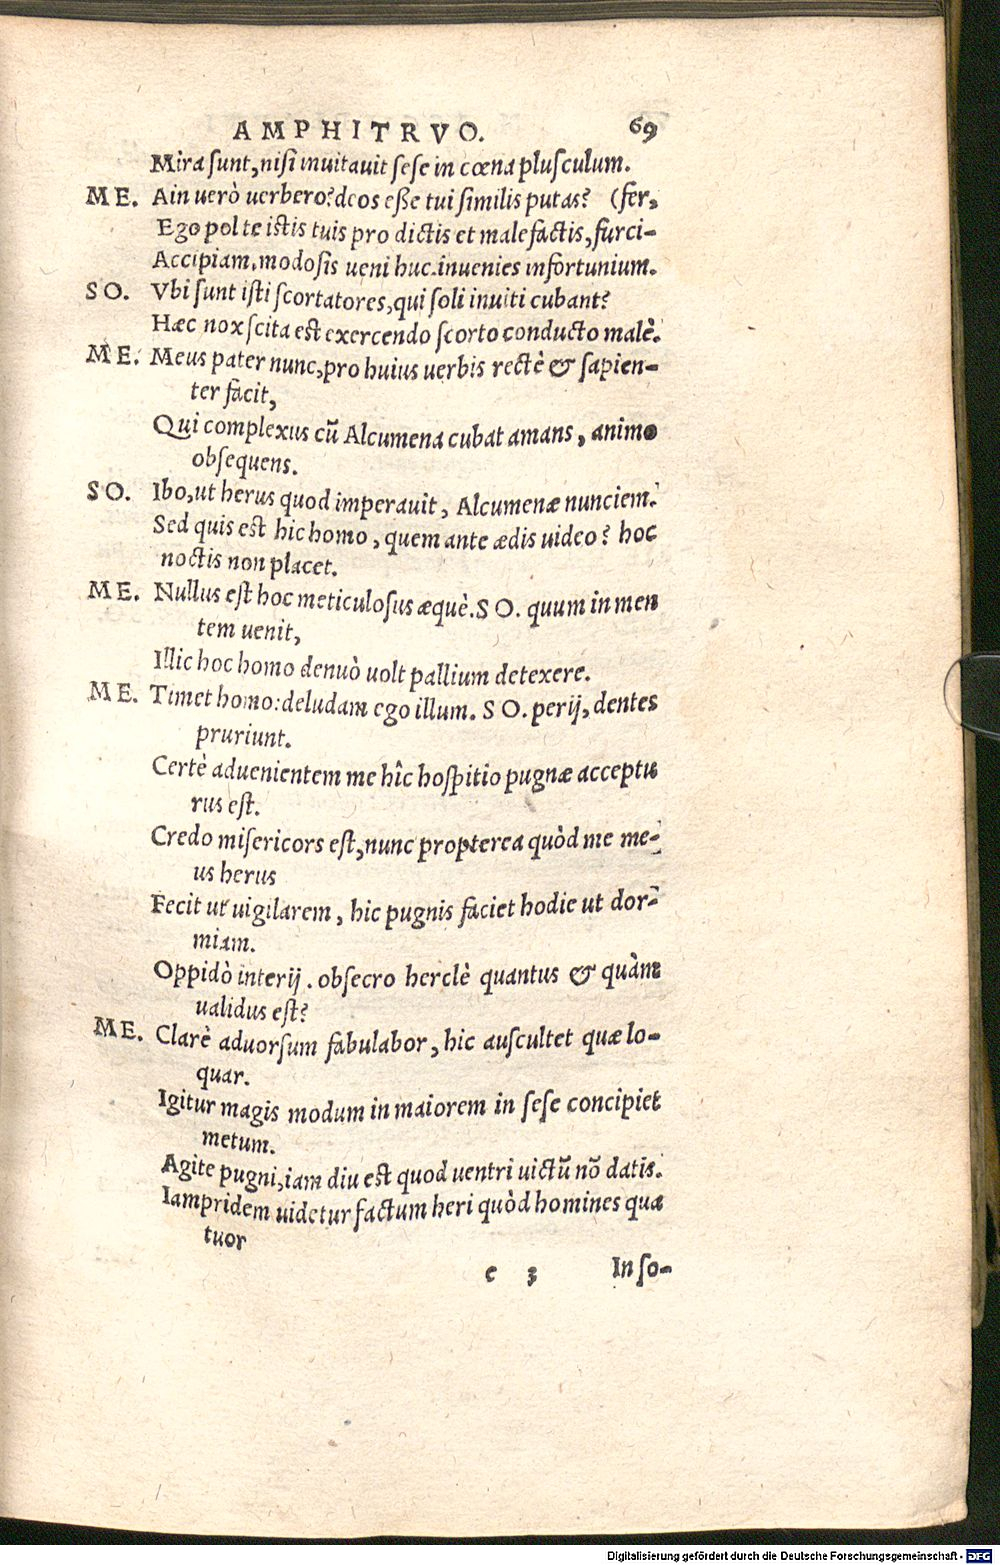 AMPHITRVO. 69
Mira sunt, nisi inuitauit sese in cœna plusculum.
ME. Ain verò uerbero? deos esse tui similis putas? (fer,
Ego pol te istis tuis pro dictis et malefactis, furci-
Accipiam, modo sis ueni huc. inuenies infortunium.
SO. Vbi sunt isti scortatores, qui soli inuiti cubant?
Hæc nox scita est exercendo scorto conducto malè.
ME. Meus pater nunc, pro huius uerbis rectè & sapien-
ter facit,
Qui complexus cū Alcumena cubat amans, animo
obsequens.
SO. Ibo, ut herus quod imperauit, Alcumenæ nunciem.
Sed quis est hic homo, quem ante ædis uideo? hoc
noctis non placet.
ME. Nullus est hoc meticulosus æquè. SO. quum in men
tem uenit,
Illic hoc homo denuò uolt pallium detexere.
ME. Timet homo: deludam ego illum. SO. perij, dentes
pruriunt.
Certè aduenientem me hîc hospitio pugnæ acceptu
rus est.
Credo misericors est, nunc propterea quòd me me-
us herus
Fecit ut uigilarem, hic pugnis faciet hodie ut dor-
miam.
Oppidò interij. obsecro herclè quantus & quàm
ualidus est?
ME. Clarè aduorsum fabulabor, hic auscultet quæ lo-
quar.
Igitur magis modum in maiorem in sese concipiet
metum.
Agite pugni, iam diu est quod uentri uictū nō datis.
Iampridem uidetur factum heri quòd homines qua
tuor
e 3 In so-
Digitalisierung gefördert durch die Deutsche Forschungsgemeinschaft - DFG